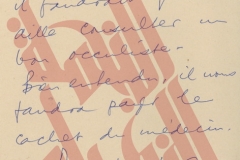 il faudrait
aille consulter un
bon oculiste.
Bien entendu, il nous
faudra payer le
cachet du médecin.